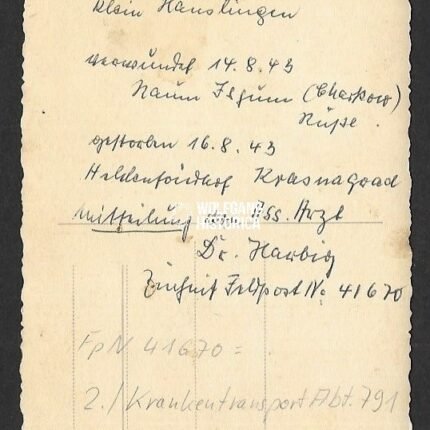 Klein Hanslingen
verwundet 14.8.43
Raum Isjum (Charkow)
Rußl.
gestorben 16.8.43
Heldenfriedhof Krasnagoad
Mitteilung Ass. Arzt
WOLFGANG
HISTORICA
Dr. Harbig
Einheit Feldpost No 41670
FpN 41670 =
2./Krankentransport Abt. 791